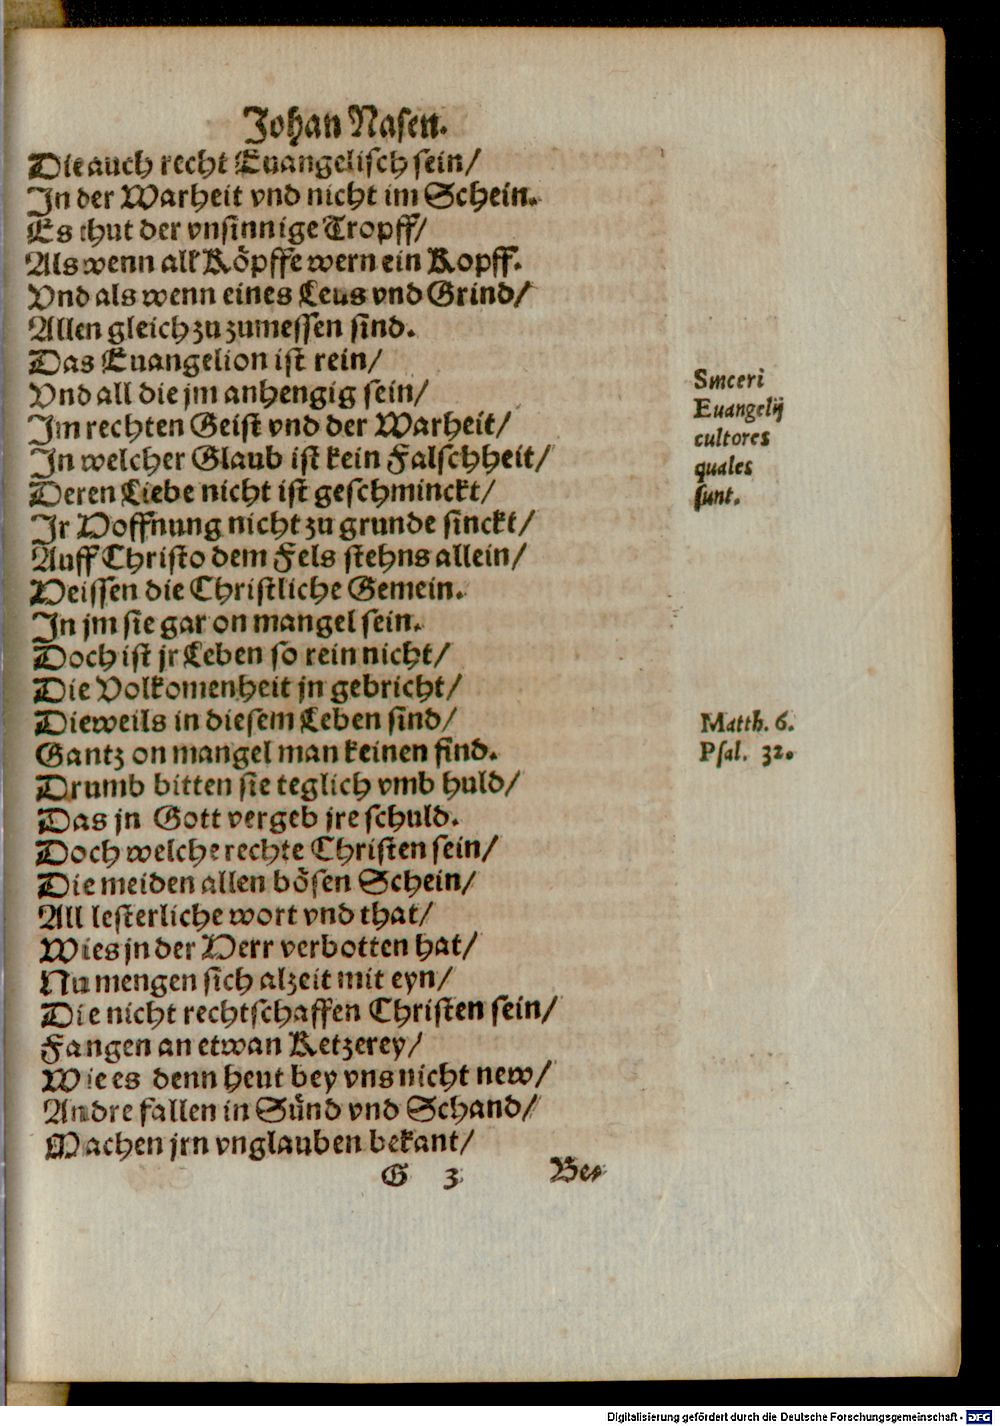 Johan Nasen.
Die auch recht Euangelisch sein/
In der Warheit vnd nicht im Schein.
Es thut der vnsinnige Tropff/
Als wenn all Köpffe wern ein Kopff.
Vnd als wenn eines Leus vnd Grind/
Allen gleich zu zumessen sind.
Das Euangelion ist rein/
Vnd all die jm anhengig sein/
Im rechten Geist vnd der Warheit/
In welcher Glaub ist kein Falschheit/
Deren Liebe nicht ist geschminckt/
Ir Hoffnung nicht zu grunde sinckt/
Auff Christo dem Fels stehns allein/
Heissen die Christliche Gemein.
In jm sie gar on mangel sein.
Doch ist jr Leben so rein nicht/
Die Volkomenheit jn gebricht/
Dieweils in diesem Leben sind/
Gantz on mangel man keinen find.
Drumb bitten sie teglich vmb huld/
Das jn Gott vergeb jre schuld.
Doch welche rechte Christen sein/
Die meiden allen bösen Schein/
All lesterliche wort vnd that/
Wies jn der Herr verbotten hat/
Nu mengen sich alzeit mit eyn/
Die nicht rechtschaffen Christen sein/
Fangen an etwan Ketzerey/
Wie es denn heut bey vns nicht new/
Andre fallen in Sünd vnd Schand/
Machen jrn vnglauben bekant/
G 3 Be-
Sinceri
Euangelij
cultores
quales
sunt.
Matth. 6.
Psal. 32.
Digitalisierung gefördert durch die Deutsche Forschungsgemeinschaft - DFG